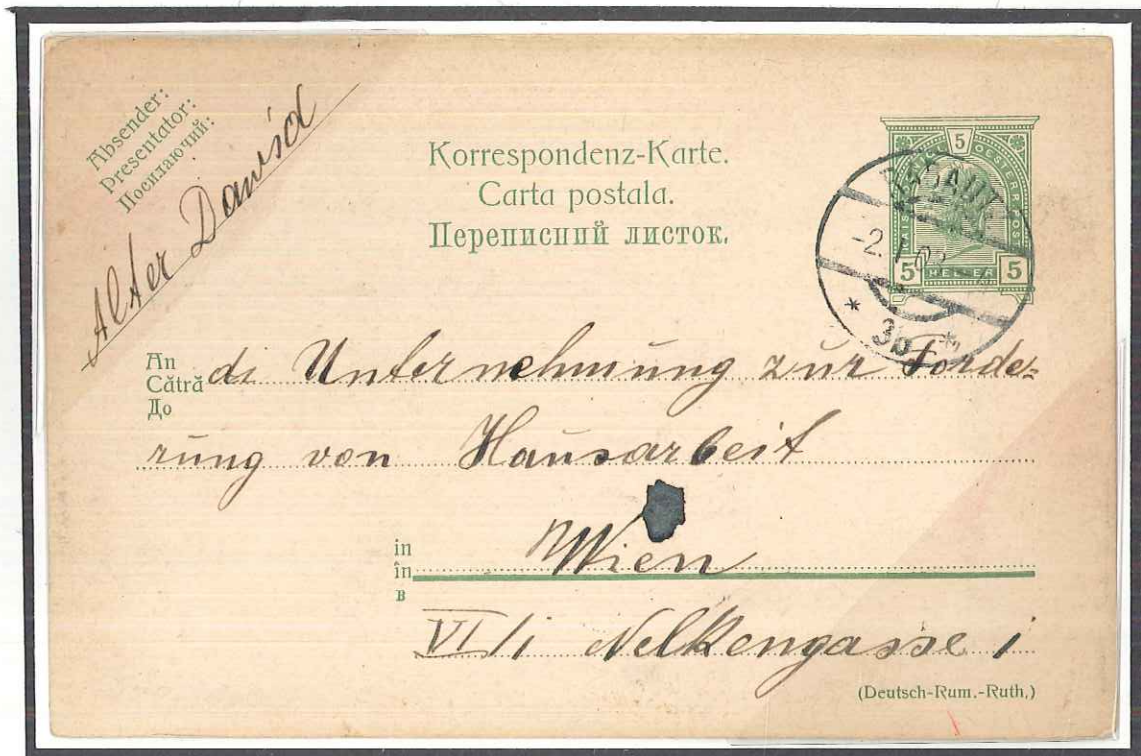 Absender:
Presentator:
Посилаючий:
Alter Dawid
Korrespondenz-Karte.
Carta postala.
Переписний листок.
5
KAIS. OESTERR. POST
5 HELLER 5
-2.
* 3b *
An
Cătră
До
di Unternehmung zur Forde=
rung von Hausarbeit
in
în
в
Wien
VI/i Nelkengasse i
(Deutsch-Rum.-Ruth.)